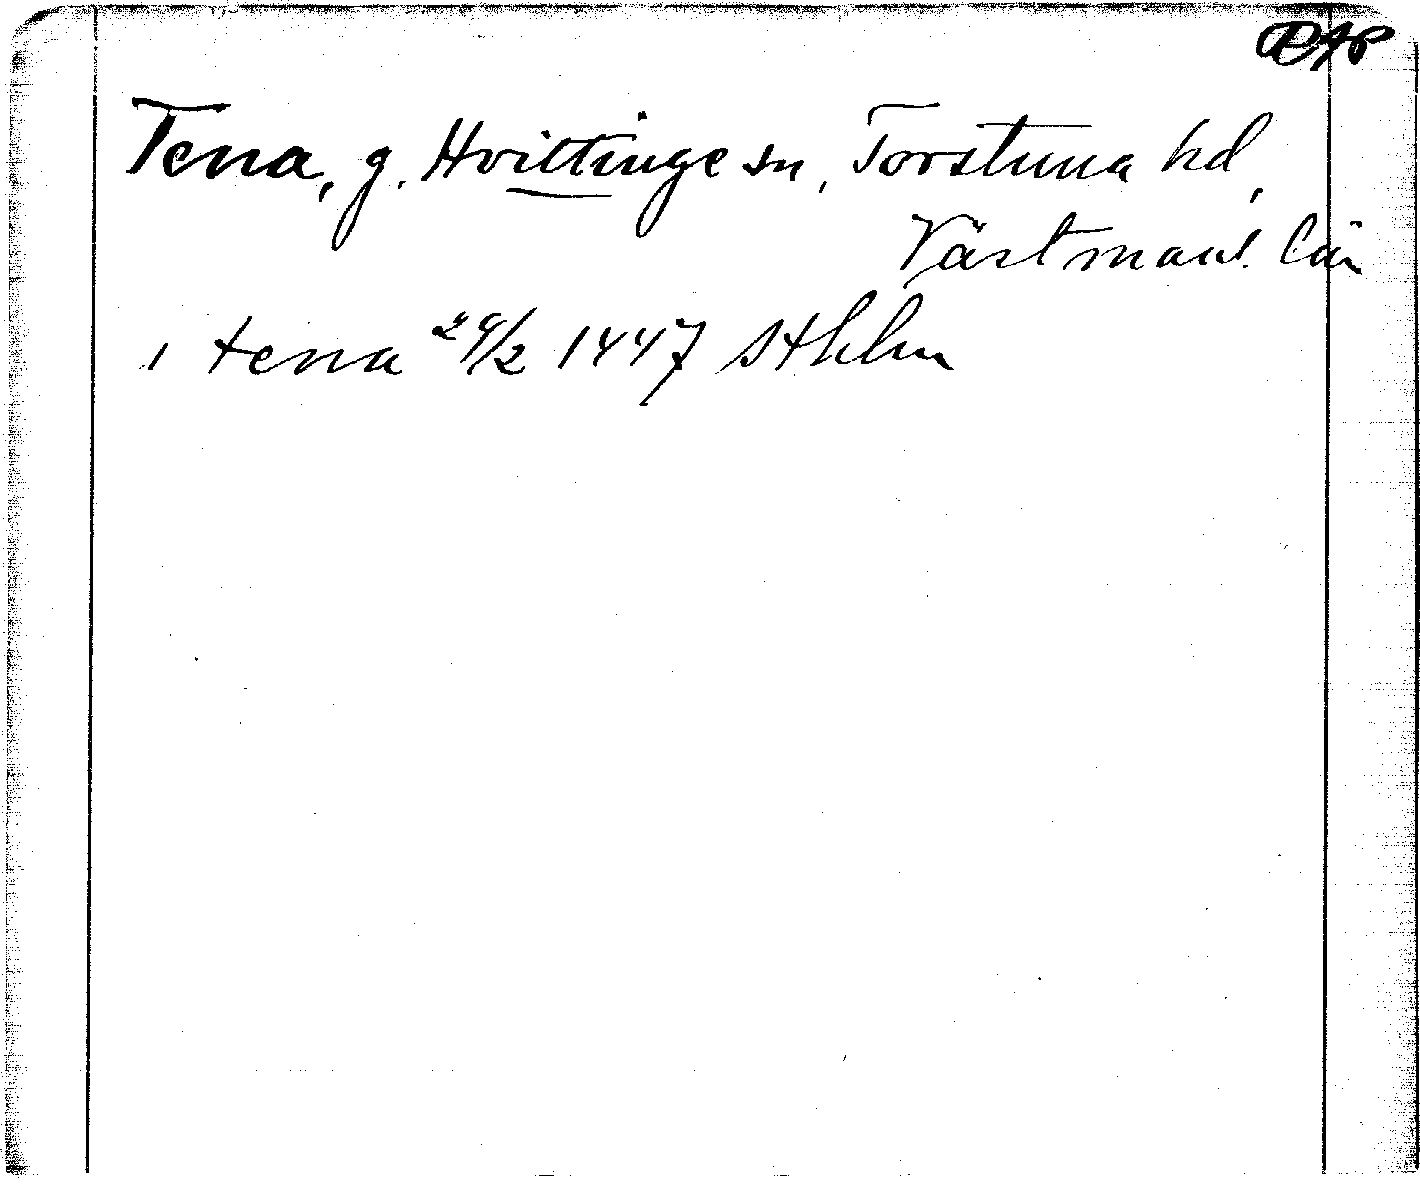 RAP
Tena, g. Hvittinge sn, Torstuna hd,
Västmanl. län
i tena 29/2 1447 Sthlm